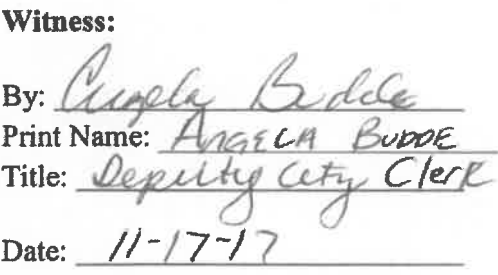 Witness:
By: Angela Budde
Print Name: ANGELA BUDDE
Title: Deputy City Clerk
Date: 11-17-17